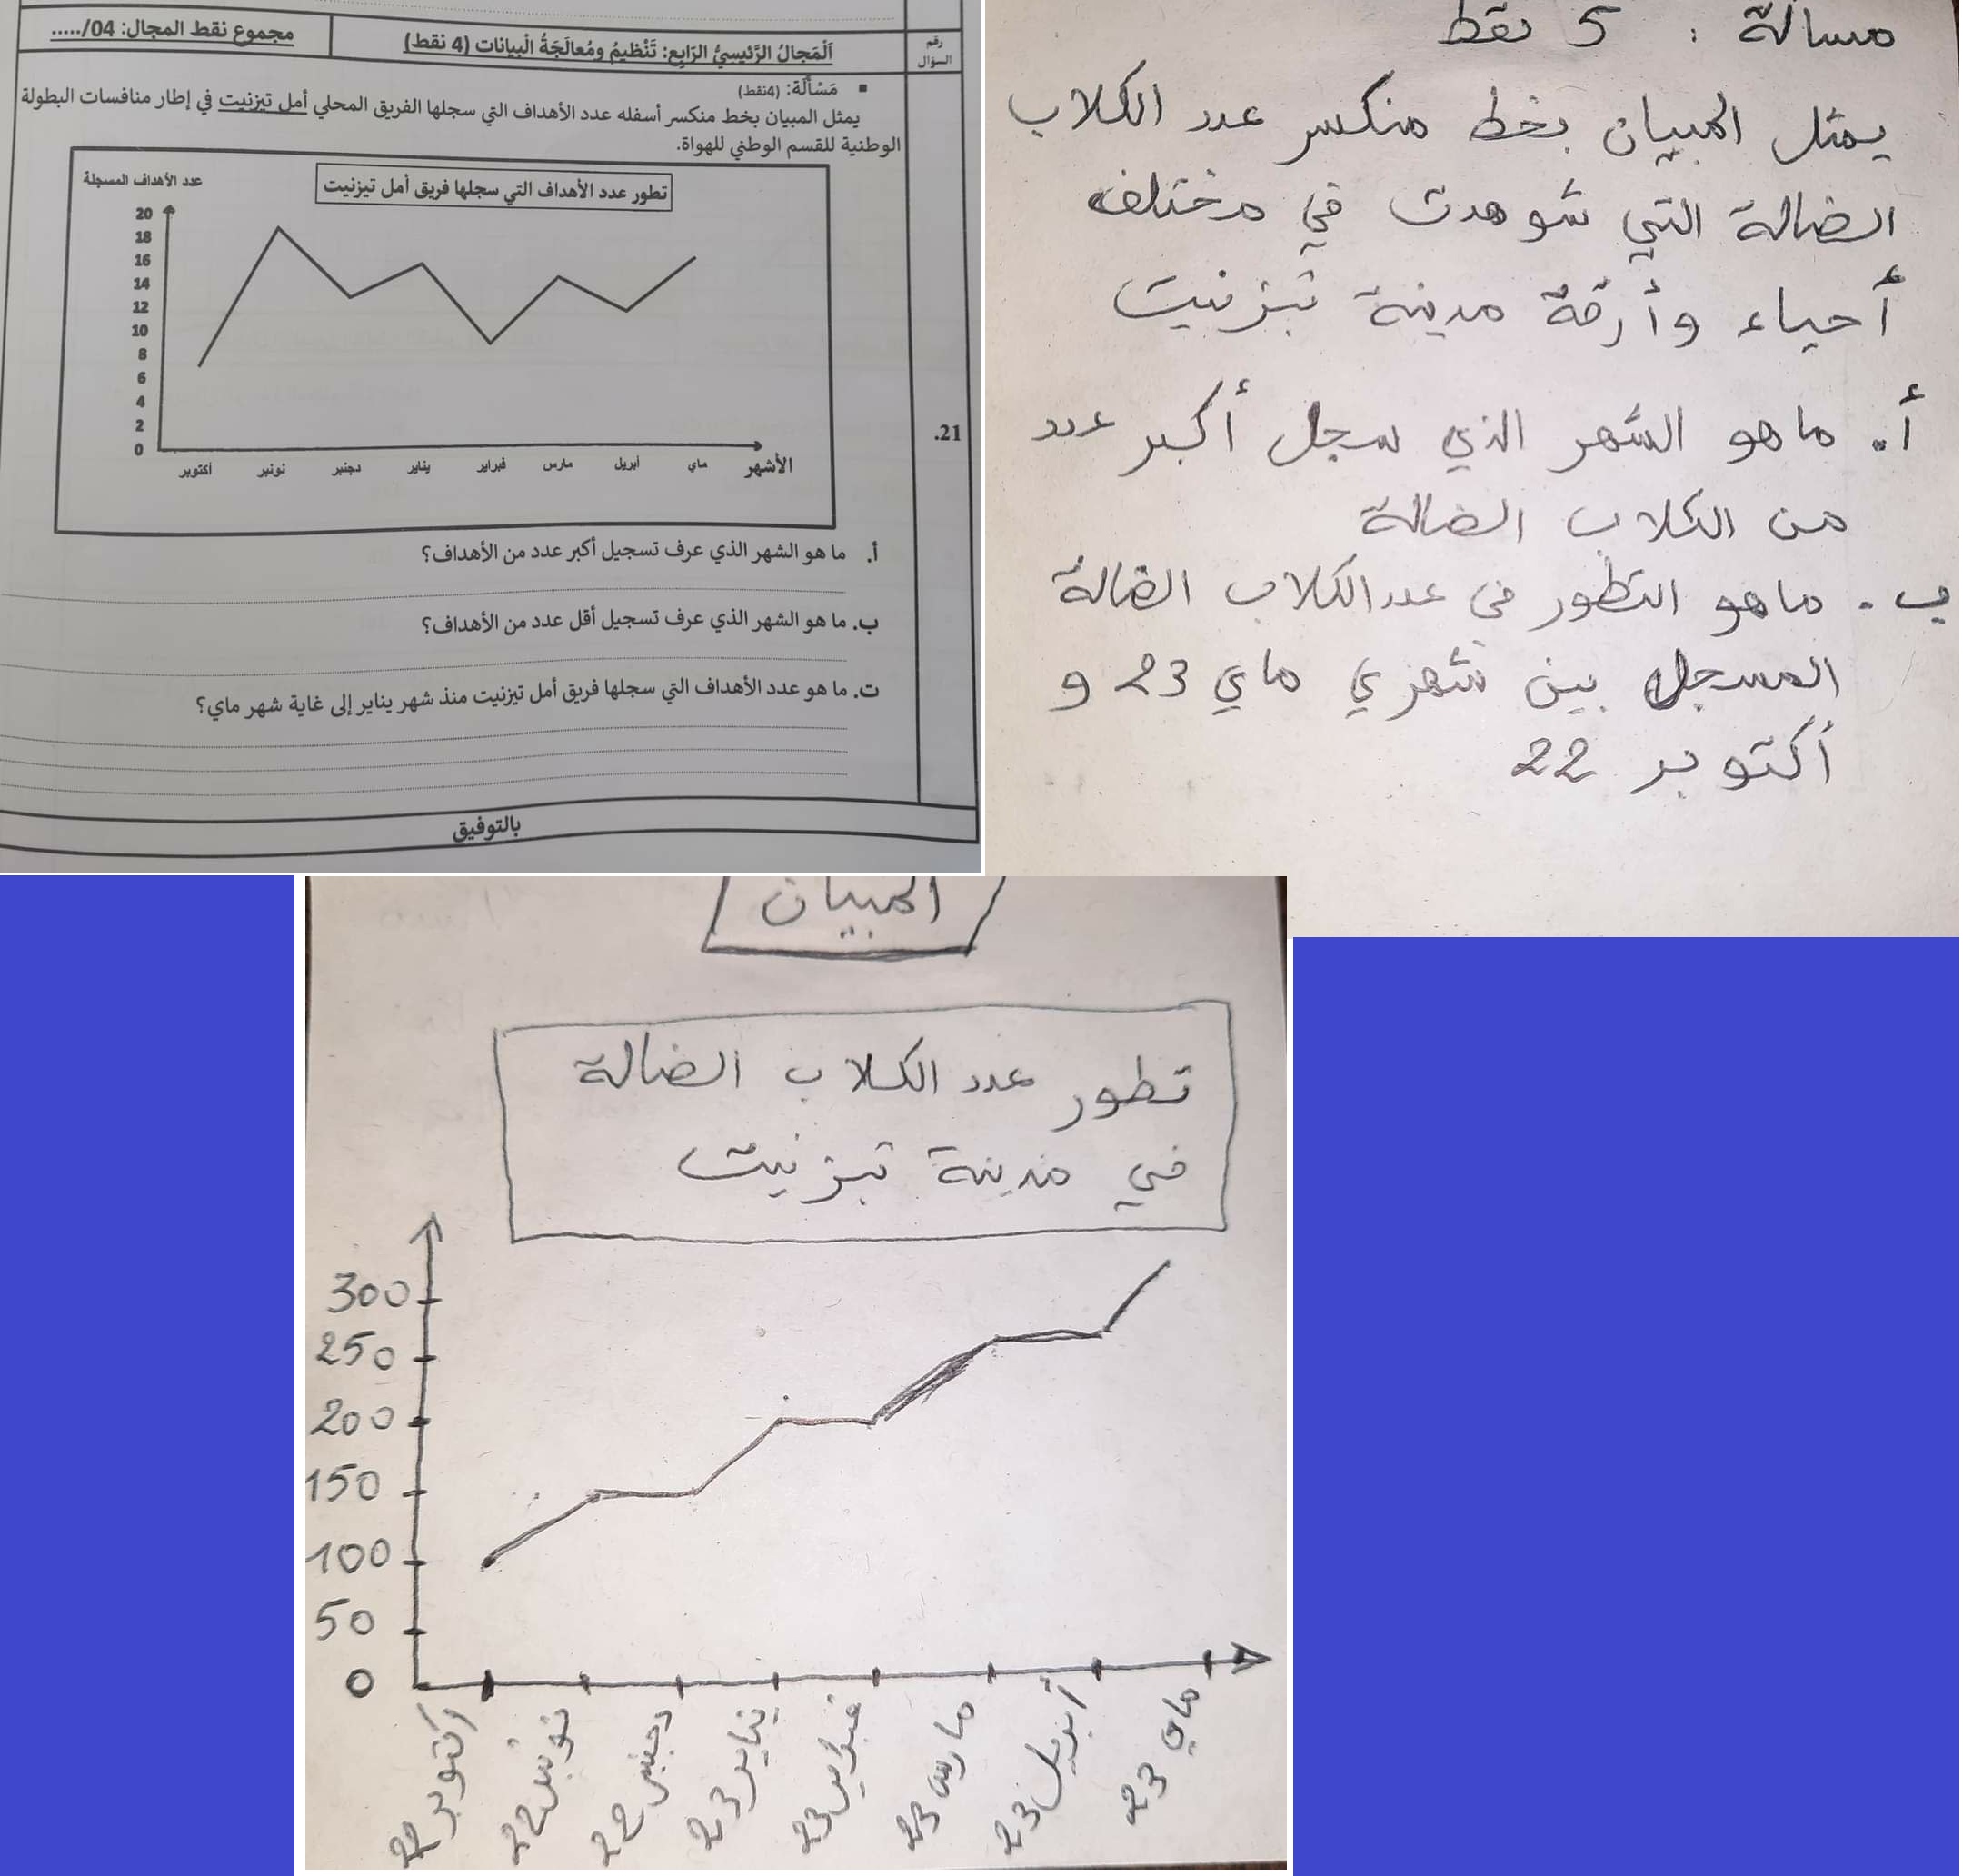 مجموع نقط المجال: 04/.....
اَلْمَجالُ الرَّئيسِيُّ الرّابِع: تَنْظيمُ ومُعالَجَةُ الْبيانات (4 نقط)
رقم
السؤال
▪ مَسْأَلَة: (4نقط)
يمثل المبيان بخط منكسر أسفله عدد الأهداف التي سجلها الفريق المحلي أمل تيزنيت في إطار منافسات البطولة
الوطنية للقسم الوطني للهواة.
تطور عدد الأهداف التي سجلها فريق أمل تيزنيت
عدد الأهداف المسجلة
20
18
16
14
12
10
8
6
4
2
0
أكتوبر نونبر دجنبر يناير فبراير مارس أبريل ماي الأشهر
21.
أ. ما هو الشهر الذي عرف تسجيل أكبر عدد من الأهداف؟
ب. ما هو الشهر الذي عرف تسجيل أقل عدد من الأهداف؟
ت. ما هو عدد الأهداف التي سجلها فريق أمل تيزنيت منذ شهر يناير إلى غاية شهر ماي؟
بالتوفيق
مسالة : 5 نقط
يمثل المبيان بخط منكسر عدد الكلاب
الضالة التي شوهدت في مختلف
أحياء وأزقة مدينة تيزنيت
أ. ما هو الشهر الذي سجل أكبر عدد
من الكلاب الضالة
ب. ما هو التطور في عدد الكلاب الضالة
المسجل بين شهري ماي 23 و
أكتوبر 22
المبيان
تطور عدد الكلاب الضالة
في مدينة تيزنيت
300
250
200
150
100
50
0
أكتوبر 22
نونبر 22
دجنبر 22
يناير 23
فبراير 23
مارس 23
أبريل 23
ماي 23